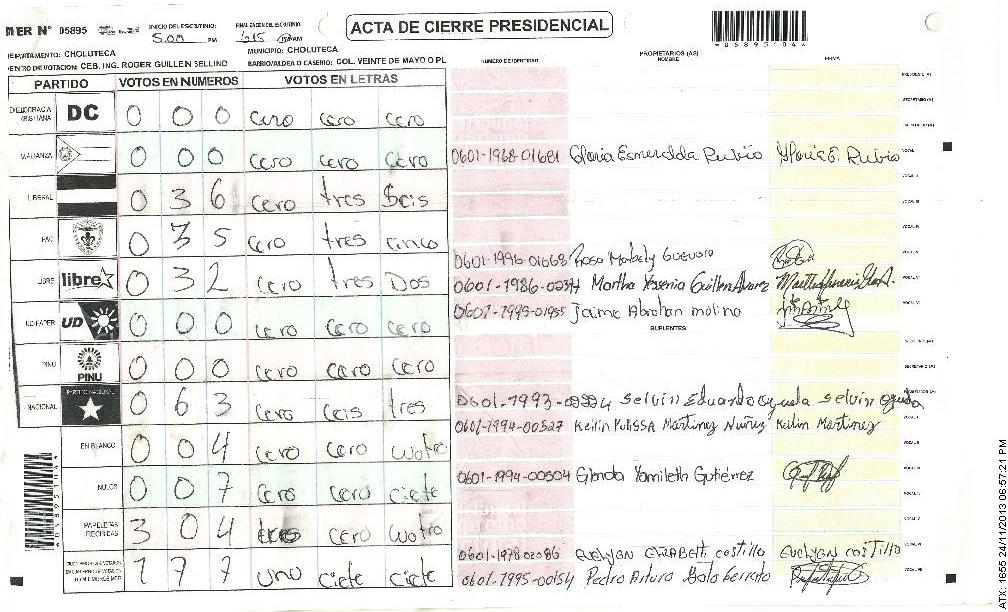 MER N° 05895 INICIO DEL ESCRUTINIO: 5:00 PM FINALIZACION DEL ESCRUTINIO: 6:15
ACTA DE CIERRE PRESIDENCIAL
058951044
DEPARTAMENTO: CHOLUTECA MUNICIPIO: CHOLUTECA
CENTRO DE VOTACION: CEB. ING. ROGER GUILLEN SELLINO BARRIO/ALDEA O CASERIO: COL. VEINTE DE MAYO O PL
PARTIDO VOTOS EN NUMEROS VOTOS EN LETRAS
DEMOCRACIA CRISTIANA DC 0 0 0 cero cero cero
M.ALIANZA 0 0 0 cero cero cero
LIBERAL 0 3 6 cero tres Seis
PAC 0 3 5 cero tres cinco
LIBRE libre 0 3 2 cero tres Dos
UD-FAPER UD 0 0 0 cero cero cero
PINU PINU 0 0 0 cero cero cero
NACIONAL PARTIDO NACIONAL 0 6 3 cero ceis tres
EN BLANCO 0 0 4 cero cero cuatro
NULOS 0 0 7 cero cero ciete
PAPELETAS RECIBIDAS 3 0 4 tres cero cuatro
1 7 7 uno ciete ciete
NUMERO DE IDENTIDAD PROPIETARIOS (AS) NOMBRE FIRMA
PRESIDENTE (A)
SECRETARIO (A)
0601-1968-01681 Gloria Esmeralda Rubio Gloria E. Rubio
0601-1996-01668 Rosa
0601-1986-02 Martha Yesenia Guillen Alvarez
0601-1995-01955 Jaime Abrahan molina
SUPLENTES
PRESIDENTE (A)
SECRETARIO (A)
0601-1993- Selvin Eduardo selvin
0601-1994-00527 Keilin Martinez Nuñez Keilin Martinez
0601-1994-00504 Glenda Yamileth Gutiérrez
0601-1978-02086 Evelyan Elizabeth costillo Evelyan costillo
0601-1995-00154 Pedro Arturo
ATX: 1655 24/11/2013 06:57:21 PM